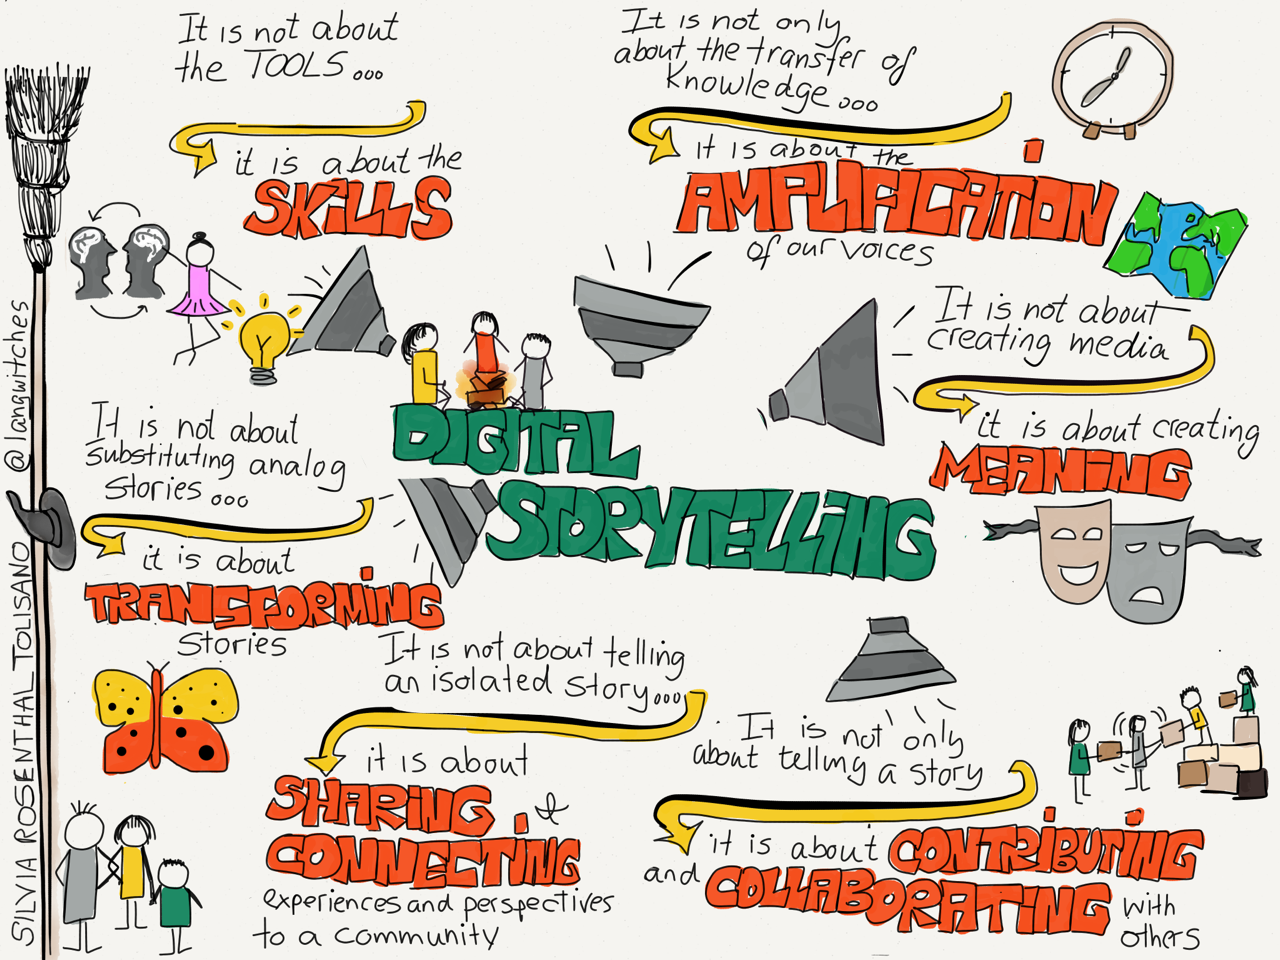 It is not about
the TOOLS ...
it is about the
SKiLLS
It is not only
about the transfer of
Knowledge ...
it is about the
AMPLiFiCATiON
of our voices
It is not about
creating media
it is about creating
MEANiNG
DiGiTAL
STORYTELLiNG
It is not about
substituting analog
Stories ...
it is about
TRANSFORMiNG
Stories
It is not about telling
an isolated Story...
it is about
SHARiNG &
CONNECTiNG
experiences and perspectives
to a community
It is not only
about telling a story
it is about CONTRiBUTiNG
and COLLABORATiNG with
others
SILVIA ROSENTHAL TOLISANO @langwitches